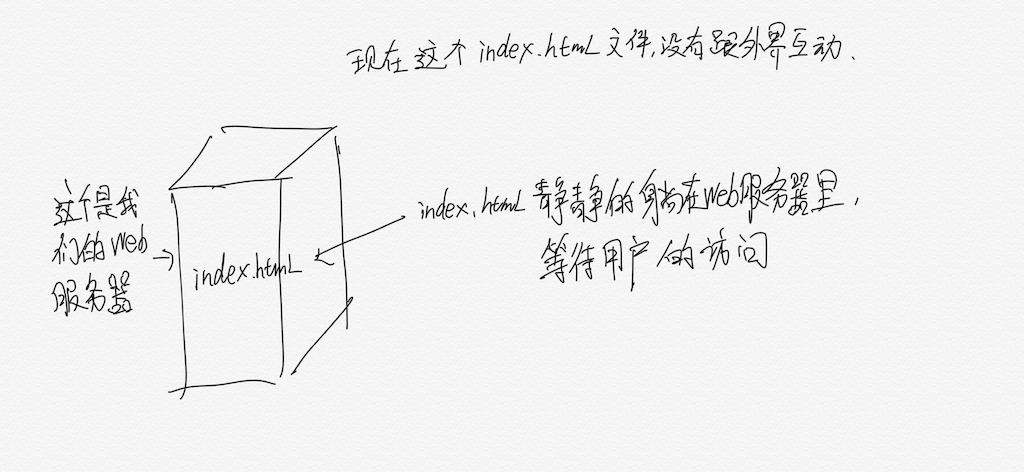 现在这个index.html文件,没有跟外界互动.
这个是我
们的Web
服务器
index.html
index.html静静的躺在Web服务器里,
等待用户的访问